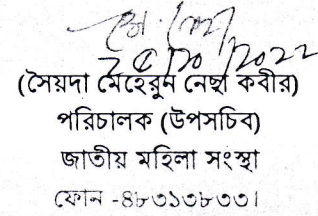 ২৫/১০/২০২২
(সৈয়দা মেহেরুন নেছা কবীর)
পরিচালক (উপসচিব)
জাতীয় মহিলা সংস্থা
ফোন -৪৮৩১৩৮৩৩।